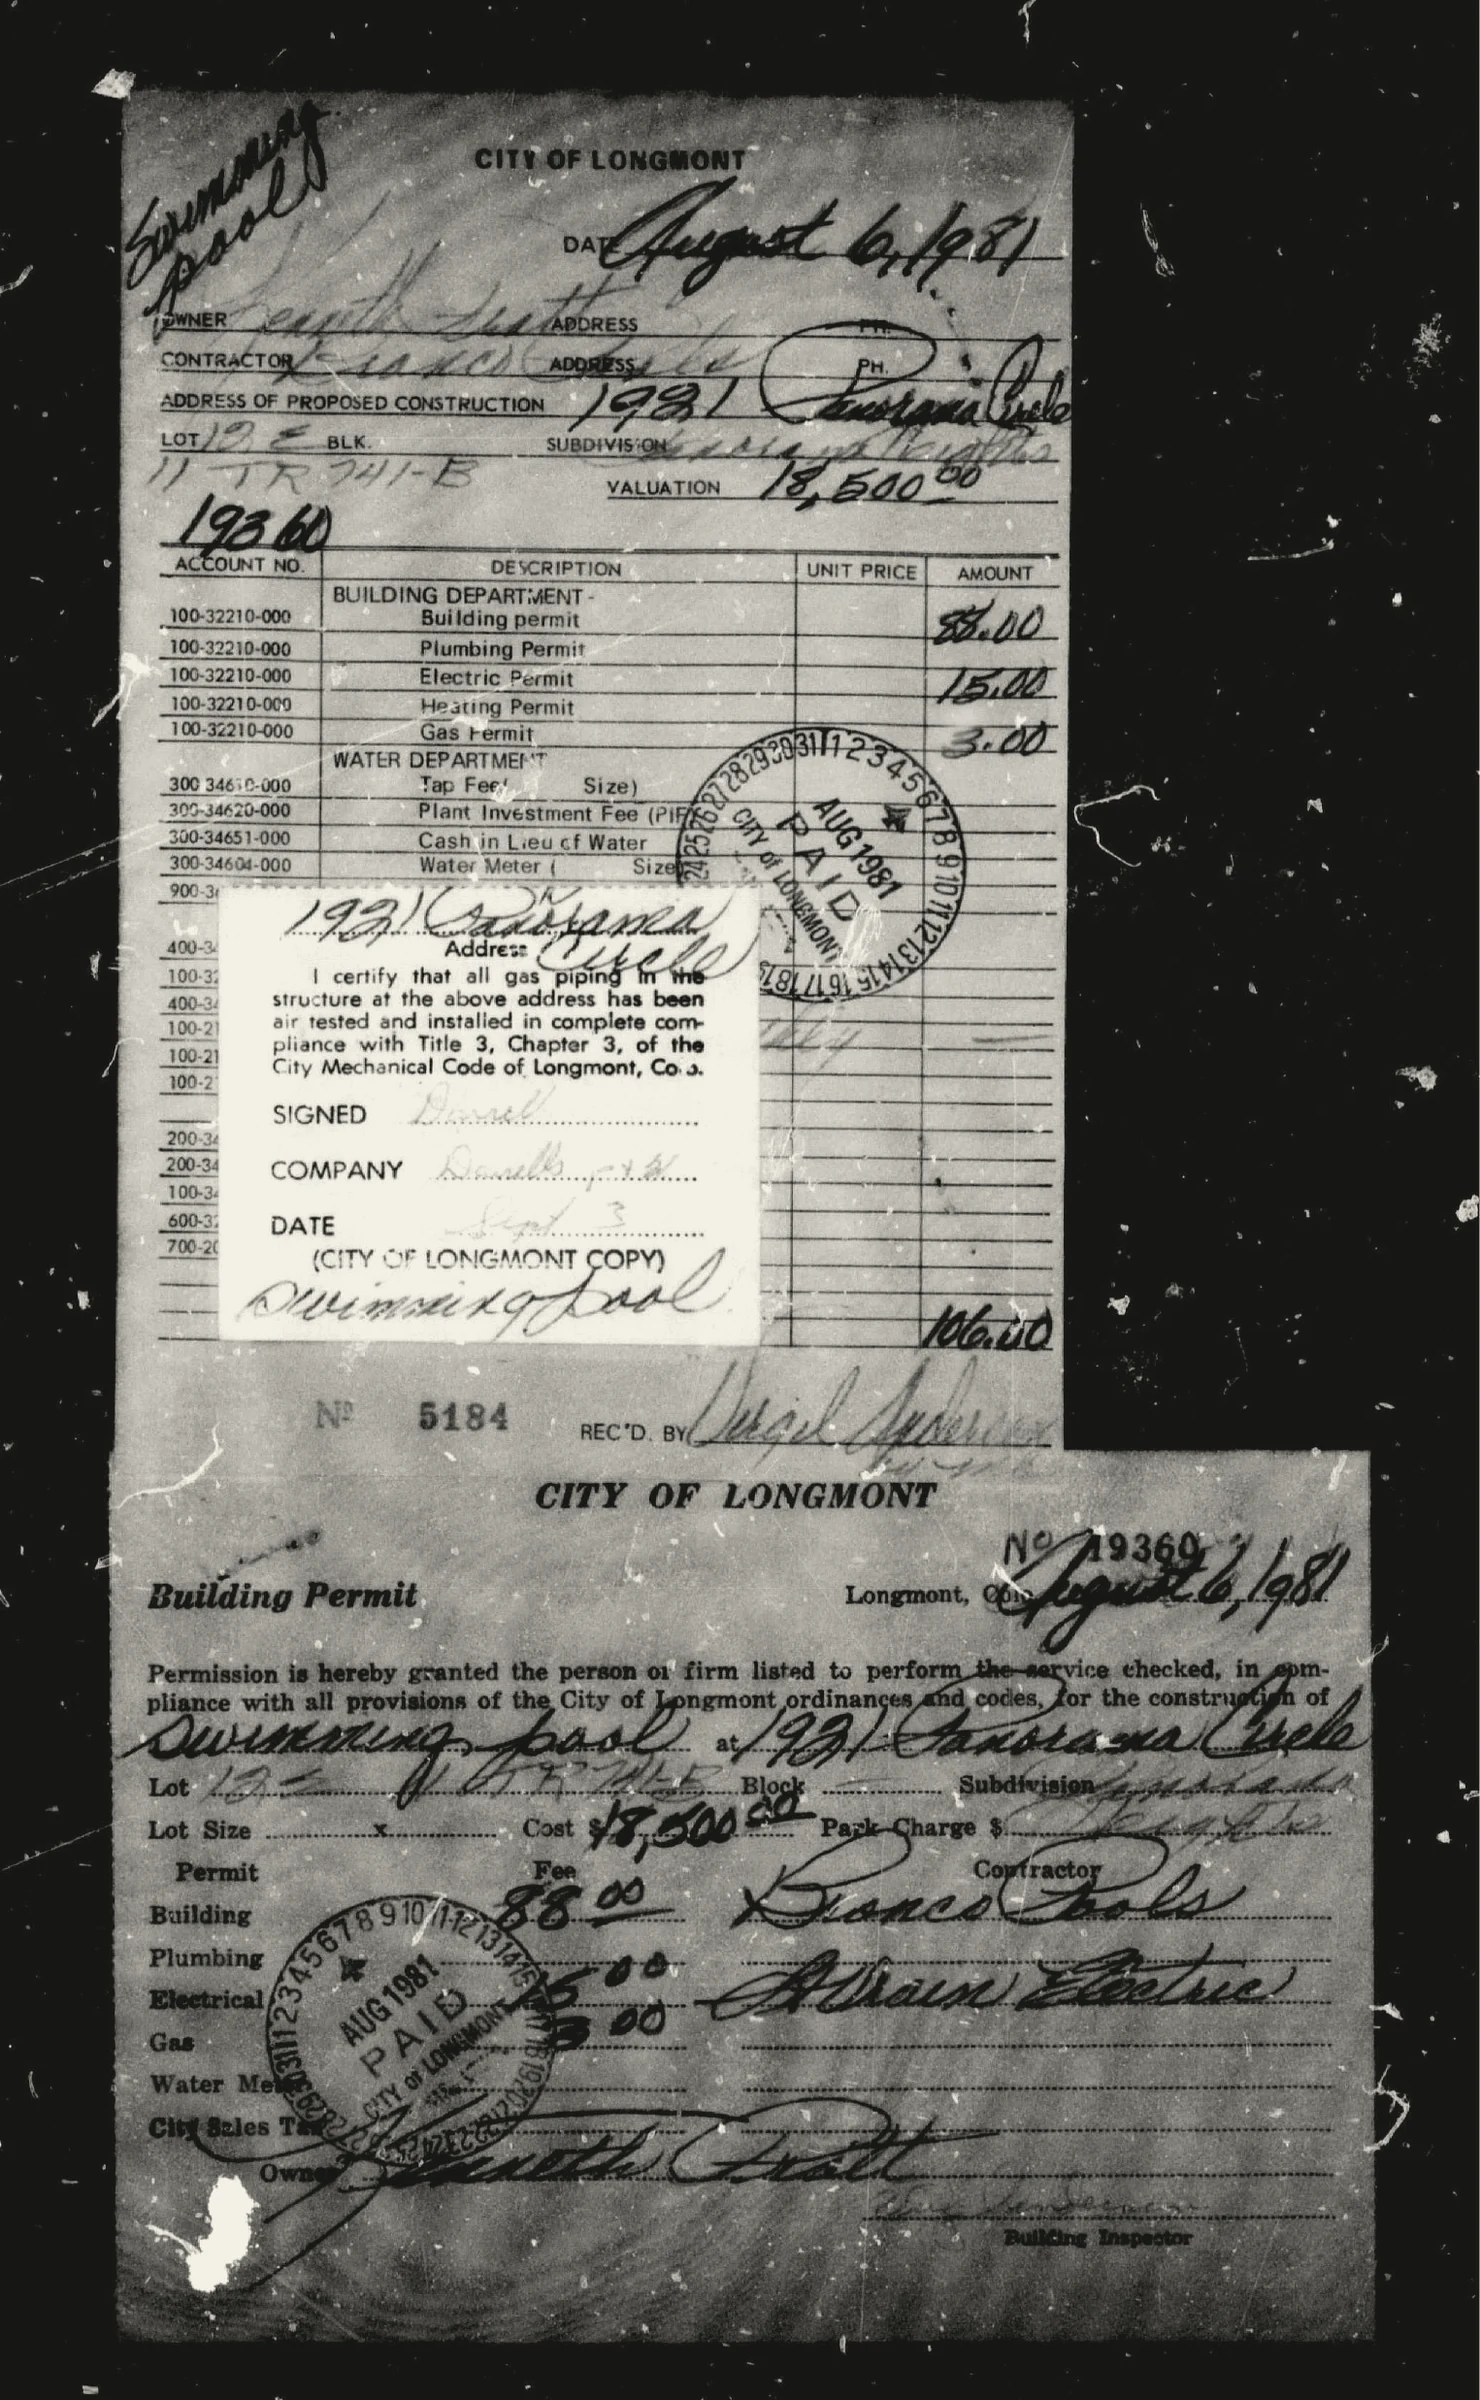 Swimming
pool
CITY OF LONGMONT
DATE August 6, 1981
OWNER Kenneth Pratt ADDRESS PH.
CONTRACTOR Bronco Pools ADDRESS PH.
ADDRESS OF PROPOSED CONSTRUCTION 1921 Panorama Circle
LOT 12 E BLK. SUBDIVISION Panorama Heights
11 TR 741-B
VALUATION 18,500.00
19360
ACCOUNT NO. DESCRIPTION UNIT PRICE AMOUNT
BUILDING DEPARTMENT-
100-32210-000 Building permit 88.00
100-32210-000 Plumbing Permit
100-32210-000 Electric Permit 15.00
100-32210-000 Heating Permit
100-32210-000 Gas Permit 3.00
WATER DEPARTMENT
300-34610-000 Tap Fee( Size)
300-34620-000 Plant Investment Fee (PIF
300-34651-000 Cash in Lieu of Water
300-34604-000 Water Meter ( Size
31 1 2 3 4 5 6 7 8 9 10 11 12 13 14 15 16 17 18 19 24 25 26 27 28 29 30
AUG 1981
PAID
CITY of LONGMONT
900-3
400-3
100-32
400-34
100-21
100-21
100-2
200-34
200-34
100-34
600-32
700-20
1921 Panorama
Address Circle
I certify that all gas piping in the
structure at the above address has been
air tested and installed in complete com-
pliance with Title 3, Chapter 3, of the
City Mechanical Code of Longmont, Colo.
SIGNED Darrell
COMPANY Darrell's
DATE Sept 3
(CITY OF LONGMONT COPY)
Swimming pool
106.00
No 5184 REC'D. BY Virgil Anderson
CITY OF LONGMONT
No 19360
Building Permit Longmont, Colo. August 6, 1981
Permission is hereby granted the person or firm listed to perform the service checked, in com-
pliance with all provisions of the City of Longmont ordinances and codes, for the construction of
Swimming pool at 1921 Panorama Circle
Lot 12 E 11 TR 741-B Block Subdivision Panorama
Heights
Lot Size x Cost $18,500.00 Park Charge $
Permit Fee Contractor
Building 88.00 Bronco Pools
Plumbing
Electrical 15.00 Electric
Gas 3.00
Water Met
City Sales Tax
Owner Kenneth Pratt
AUG 1981
PAID
CITY of LONGMONT
Building Inspector